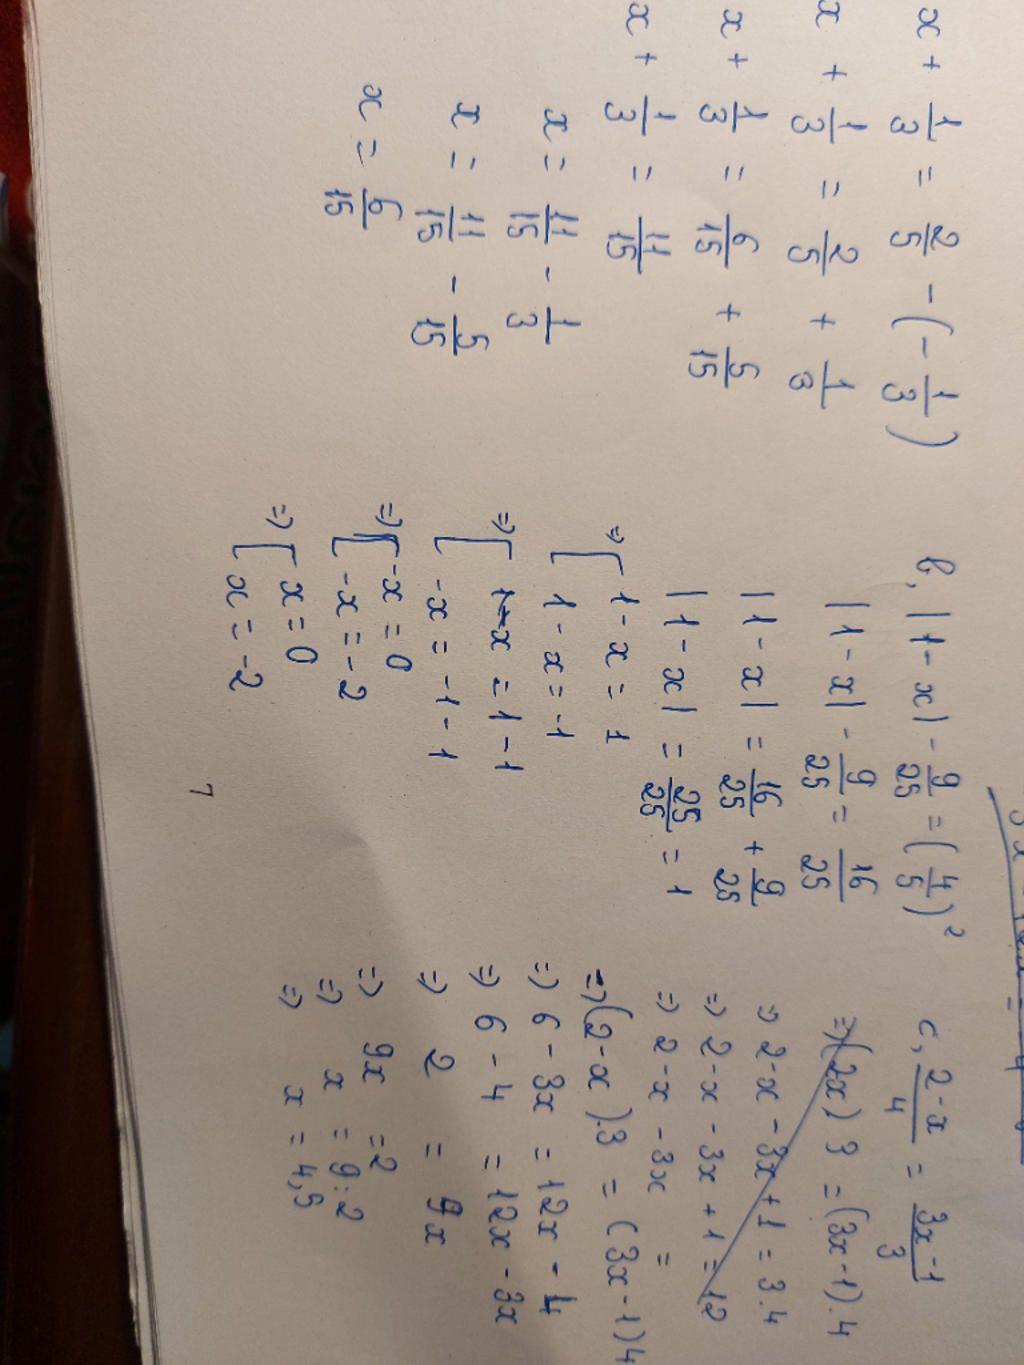 x + 1/3 = 2/5 - (- 1/3)
x + 1/3 = 2/5 + 1/3
x + 1/3 = 6/15 + 5/15
x + 1/3 = 11/15
x = 11/15 - 1/3
x = 11/15 - 5/15
x = 6/15
b, |1 - x| - 9/25 = (4/5)²
|1 - x| - 9/25 = 16/25
|1 - x| = 16/25 + 9/25
|1 - x| = 25/25 = 1
=> [ 1 - x = 1
[ 1 - x = -1
=> [ -x = 1 - 1
[ -x = -1 - 1
=> [ -x = 0
[ -x = -2
=> [ x = 0
[ x = -2
7
c, 2-x/4 = 3x-1/3
=> (2x) 3 = (3x-1).4
=> 2-x - 3x + 1 = 3.4
=> 2-x - 3x + 1 = 12
=> 2-x - 3x =
=> (2-x).3 = (3x-1)4
=> 6 - 3x = 12x - 4
=> 6 - 4 = 12x - 3x
=> 2 = 9x
=> 9x = 2
=> x = 9:2
=> x = 4,5